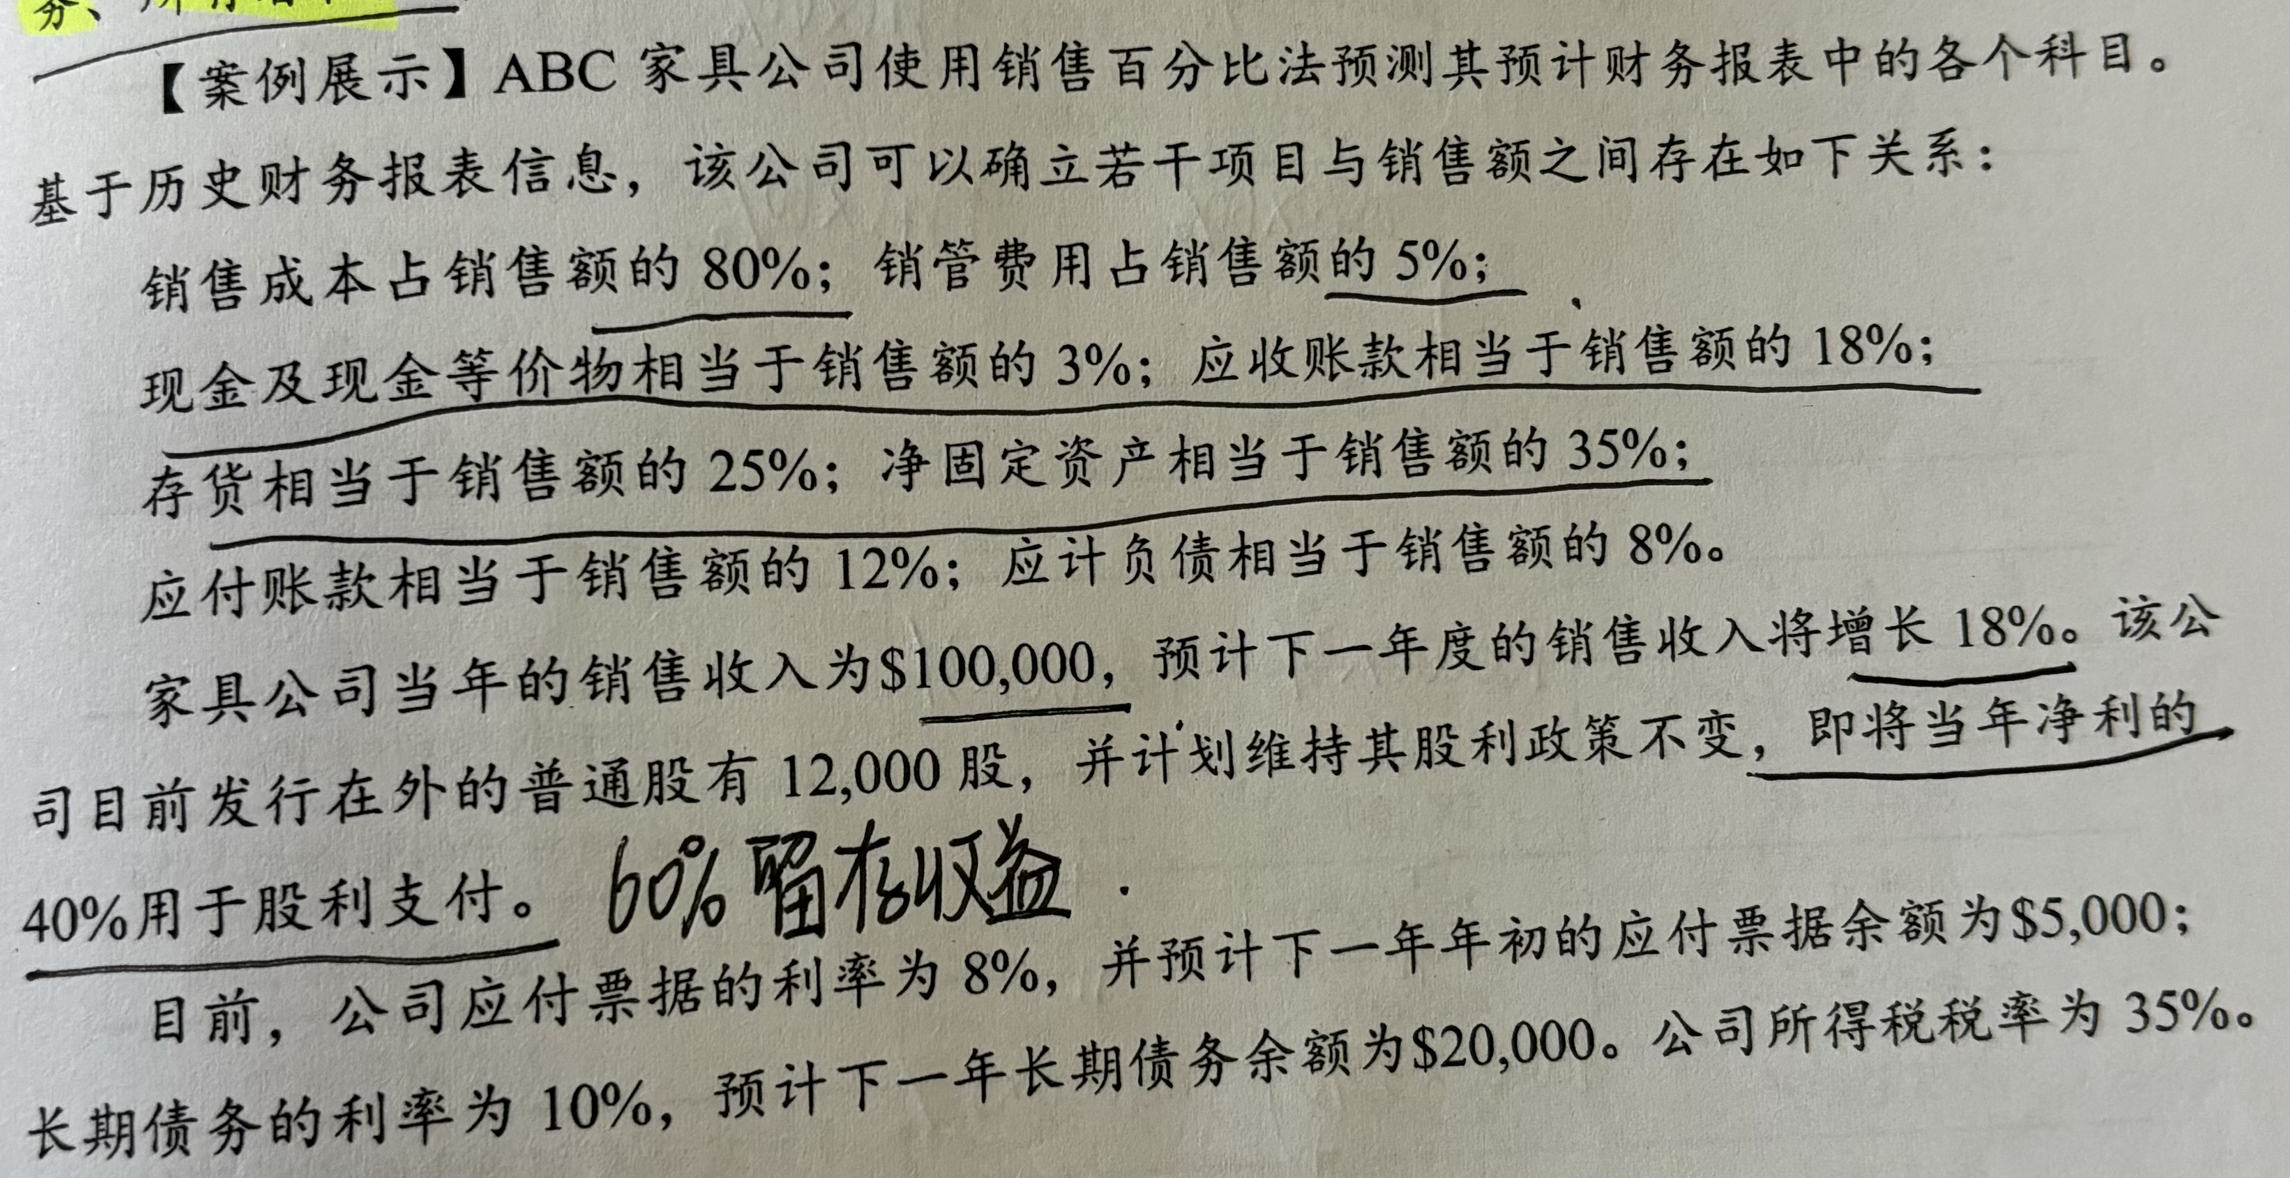 【案例展示】ABC 家具公司使用销售百分比法预测其预计财务报表中的各个科目。
基于历史财务报表信息，该公司可以确立若干项目与销售额之间存在如下关系：
销售成本占销售额的 80%；销管费用占销售额的 5%；
现金及现金等价物相当于销售额的 3%；应收账款相当于销售额的 18%；
存货相当于销售额的 25%；净固定资产相当于销售额的 35%；
应付账款相当于销售额的 12%；应计负债相当于销售额的 8%。
家具公司当年的销售收入为$100,000，预计下一年度的销售收入将增长 18%。该公
司目前发行在外的普通股有 12,000 股，并计划维持其股利政策不变，即将当年净利的
40%用于股利支付。 60% 留存收益
目前，公司应付票据的利率为 8%，并预计下一年年初的应付票据余额为$5,000；
长期债务的利率为 10%，预计下一年长期债务余额为$20,000。公司所得税税率为 35%。